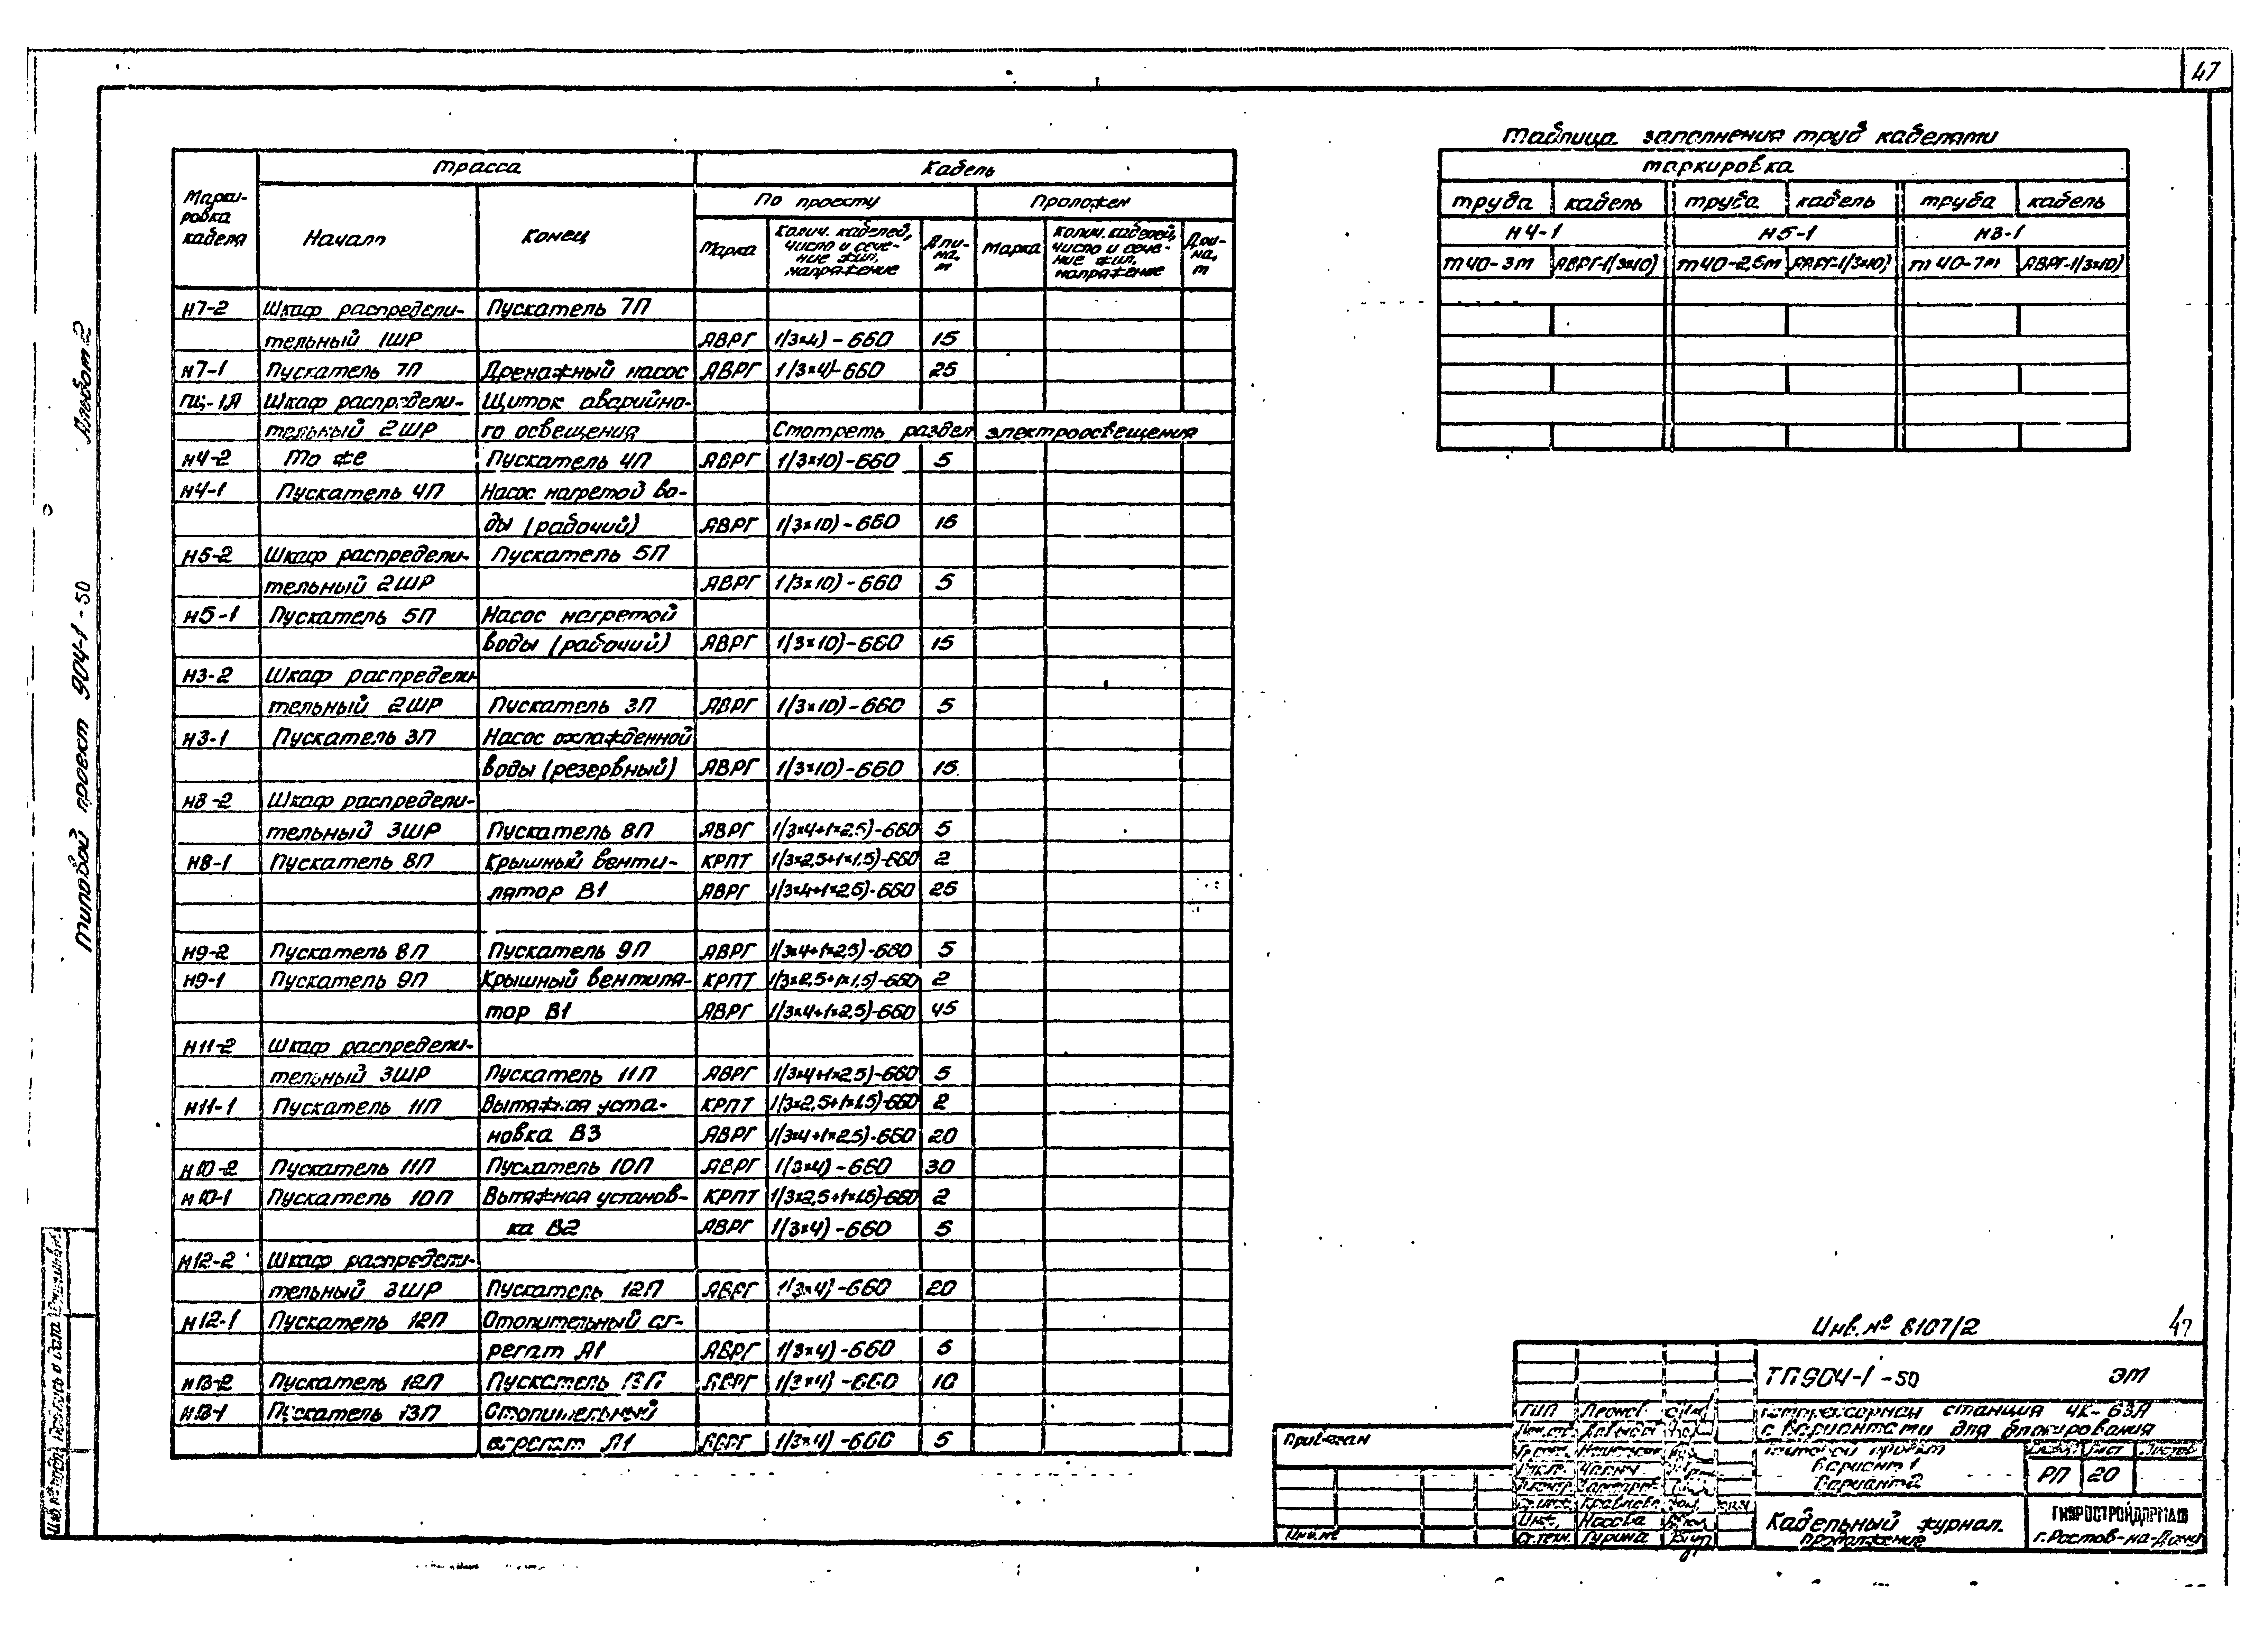 47
Таблица заполнения труб кабелями
Маркировка
труба кабель труба кабель труба кабель
Н4-1 Н5-1 Н3-1
Т40-3м АВРГ-1(3×10) Т40-2,5м АВРГ-1(3×10) Т40-7м АВРГ-1(3×10)
Альбом 2
Типовой проект 904-1-50
Марки-
ровка
кабеля
Трасса
Кабель
Начало
Конец
По проекту
Проложен
Марка
Колич. кабелей,
число и сече-
ние жил,
напряжение
Дли-
на,
м
Марка
Колич. кабелей,
число и сече-
ние жил,
напряжение
Дли-
на,
м
Н7-2 Шкаф распредели- Пускатель 7П
тельный 1ШР АВРГ 1(3×4)-660 15
Н7-1 Пускатель 7П Дренажный насос АВРГ 1(3×4)-660 25
Шкаф распредели- Щиток аварийно-
тельный 2ШР го освещения Смотреть раздел электроосвещения
Н4-2 То же Пускатель 4П АВРГ 1(3×10)-660 5
Н4-1 Пускатель 4П Насос нагретой во-
ды (рабочий) АВРГ 1(3×10)-660 15
Н5-2 Шкаф распредели- Пускатель 5П
тельный 2ШР АВРГ 1(3×10)-660 5
Н5-1 Пускатель 5П Насос нагретой
воды (рабочий) АВРГ 1(3×10)-660 15
Н3-2 Шкаф распредели
тельный 2ШР Пускатель 3П АВРГ 1(3×10)-660 5
Н3-1 Пускатель 3П Насос охлажденной
воды (резервный) АВРГ 1(3×10)-660 15
Н8-2 Шкаф распредели-
тельный 3ШР Пускатель 8П АВРГ 1(3×4+1×2,5)-660 5
Н8-1 Пускатель 8П Крышный венти- КРПТ 1(3×2,5+1×1,5)-660 2
лятор В1 АВРГ 1(3×4+1×2,5)-660 25
Н9-2 Пускатель 8П Пускатель 9П АВРГ 1(3×4+1×2,5)-660 5
Н9-1 Пускатель 9П Крышный вентиля- КРПТ 1(3×2,5+1×1,5)-660 2
тор В1 АВРГ 1(3×4+1×2,5)-660 45
Н11-2 Шкаф распредели-
тельный 3ШР Пускатель 11П АВРГ 1(3×4+1×2,5)-660 5
Н11-1 Пускатель 11П Вытяжная уста- КРПТ 1(3×2,5+1×1,5)-660 2
новка В3 АВРГ 1(3×4+1×2,5)-660 20
Н10-2 Пускатель 11П Пускатель 10П АВРГ 1(3×4)-660 30
Н10-1 Пускатель 10П Вытяжная установ- КРПТ 1(3×2,5+1×1,5)-660 2
ка В2 АВРГ 1(3×4)-660 5
Н12-2 Шкаф распредели-
тельный 3ШР Пускатель 12П АВРГ 1(3×4)-660 20
Н12-1 Пускатель 12П Отопительный аг-
регат А1 АВРГ 1(3×4)-660 5
Н13-2 Пускатель 12П Пускатель 13П АВРГ 1(3×4)-660 10
Н13-1 Пускатель 13П Отопительный
агрегат А1 АВРГ 1(3×4)-660 5
Инв.№ 8107/2 47
ТП904-1-50 ЭМ
Компрессорная станция 4К-63А
с вариантами для блокирования
Типовой проект
Вариант 1
Вариант 2
Лист Листов
РП 20
Кабельный журнал.
Продолжение
ГИПРОСТРОЙДОРМАШ
г.Ростов-на-Дону
Привязан
Инв.№
ГИП Леонов
Инж. Носова
Ст.техн. Гурина